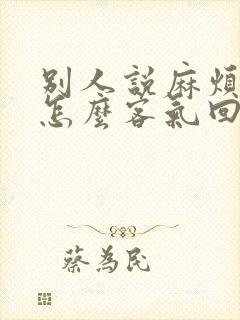 別人說麻煩
怎麼客氣回
蔡為民